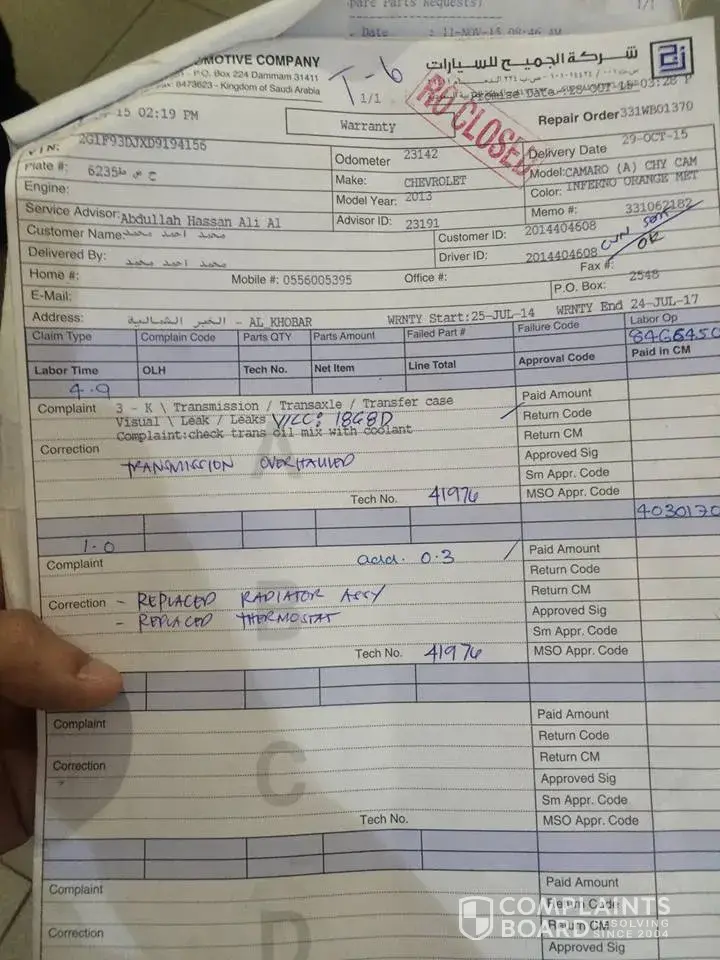 pare Parts Requests)
1/1
Date : 11-NOV-15 08:46 AM
MOTIVE COMPANY
شركة الجميح للسيارات
P.O. Box 224 Dammam 31411
8473623 - Kingdom of Saudi Arabia
T-6
1/1
RO CLOSED
Promise Date: 28-OCT-15 03:28 P
15 02:19 PM
Warranty
Repair Order 331WB01370
VIN: 2G1F93DJXD9194156
Odometer 23142
Delivery Date 29-OCT-15
Plate #: 6235
Make: CHEVROLET
Model: CAMARO (A) CHY CAM
Engine:
Model Year: 2013
Color: INFERNO ORANGE MET
Service Advisor: Abdullah Hassan Ali Al
Advisor ID: 23191
Memo #: 331062182
Customer Name: محمد احمد محمد
Customer ID: 2014404608
Delivered By: محمد احمد محمد
Driver ID: 2014404608
OR
Home #:
Mobile #: 0556005395
Office #:
Fax #:
E-Mail:
P.O. Box: 2548
Address: الخبر الشمالية - AL KHOBAR
WRNTY Start:25-JUL-14 WRNTY End 24-JUL-17
Claim Type Complain Code Parts QTY Parts Amount Failed Part # Failure Code Labor Op
84G6450
Labor Time OLH Tech No. Net Item Line Total Approval Code Paid in CM
4.9
Complaint 3 - K \ Transmission / Transaxle / Transfer case
Paid Amount
Visual \ Leak / Leaks V/CC: 18G8D
Return Code
Complaint:check trans oil mix with coolant
Return CM
Correction
TRANSMISSION OVERHAULED
Approved Sig
A
Sm Appr. Code
Tech No. 41976
MSO Appr. Code
4030170
1.0
Complaint
add. 0.3
Paid Amount
Return Code
Correction - REPLACED RADIATOR ASSY
Return CM
- REPLACED THERMOSTAT
Approved Sig
B
Sm Appr. Code
Tech No. 41976
MSO Appr. Code
Complaint
Paid Amount
Return Code
Correction
Return CM
C
Approved Sig
Sm Appr. Code
Tech No.
MSO Appr. Code
Complaint
Paid Amount
Return Code
Correction
Return CM
D
Approved Sig
COMPLAINTS
BOARD RESOLVING
SINCE 2004